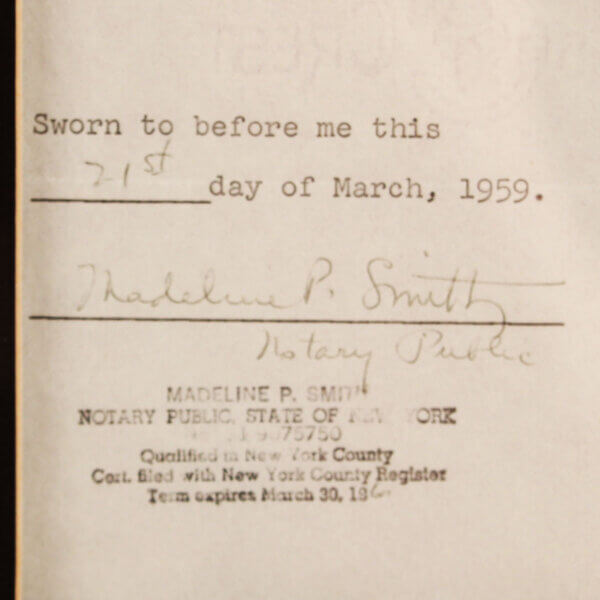 Sworn to before me this
21st day of March, 1959.
Madeline P. Smith
Notary Public
MADELINE P. SMITH
NOTARY PUBLIC, STATE OF NEW YORK
75750
Qualified in New York County
Cert. filed with New York County Register
Term expires March 30, 19